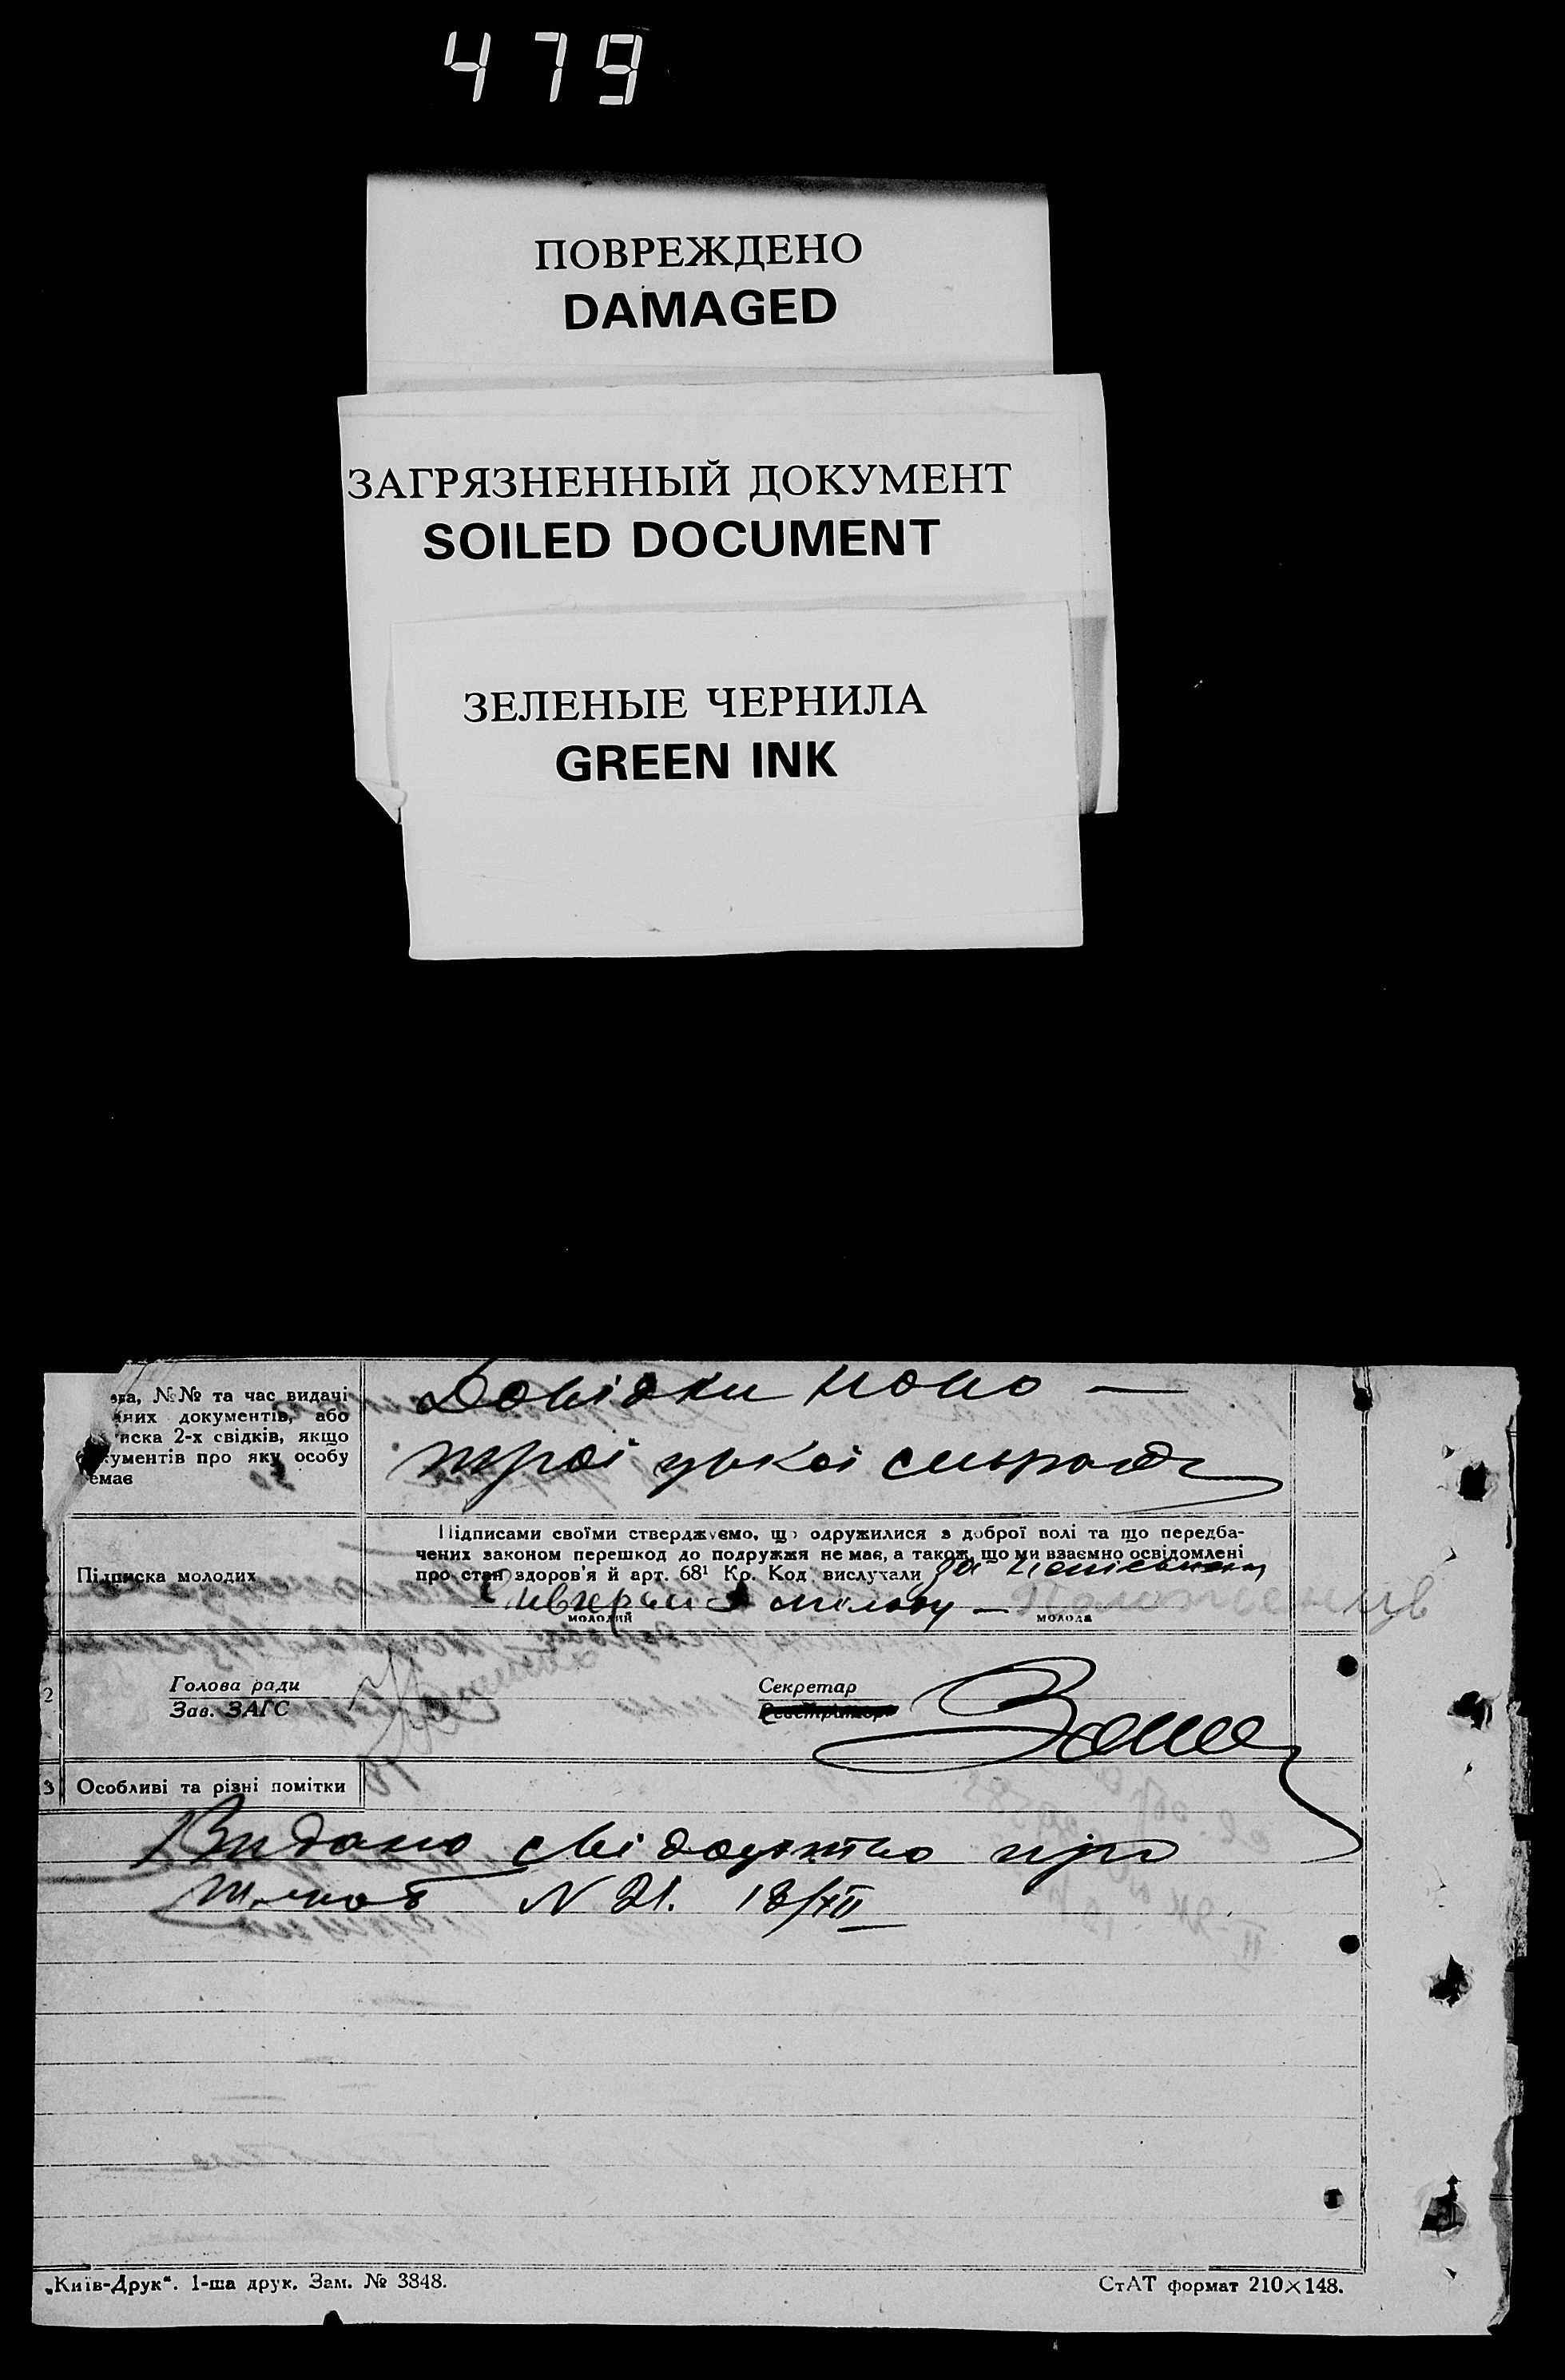 479
ПОВРЕЖДЕНО
DAMAGED
ЗАГРЯЗНЕННЫЙ ДОКУМЕНТ
SOILED DOCUMENT
ЗЕЛЕНЫЕ ЧЕРНИЛА
GREEN INK
№№ та час видачі
документів, або
2-х свідків, якщо
про яку особу
Довідки ново —
троїцької сільради
Підписка молодих
Підписами своїми стверджуємо, що одружилися з доброї волі та що передба-
чених законом перешкод до подружжя не має, а також, що ми взаємно освідомлені
про стан здоров'я й арт. 68¹ Кр. Код вислухали за
молодий молода
2
Голова ради
Зав. ЗАГС
Секретар
3 Особливі та різні помітки
Видано свідоцтво про
шлюб N 21. 18/XII
„Київ-Друк“. 1-ша друк. Зам. № 3848.
СтАТ формат 210×148.